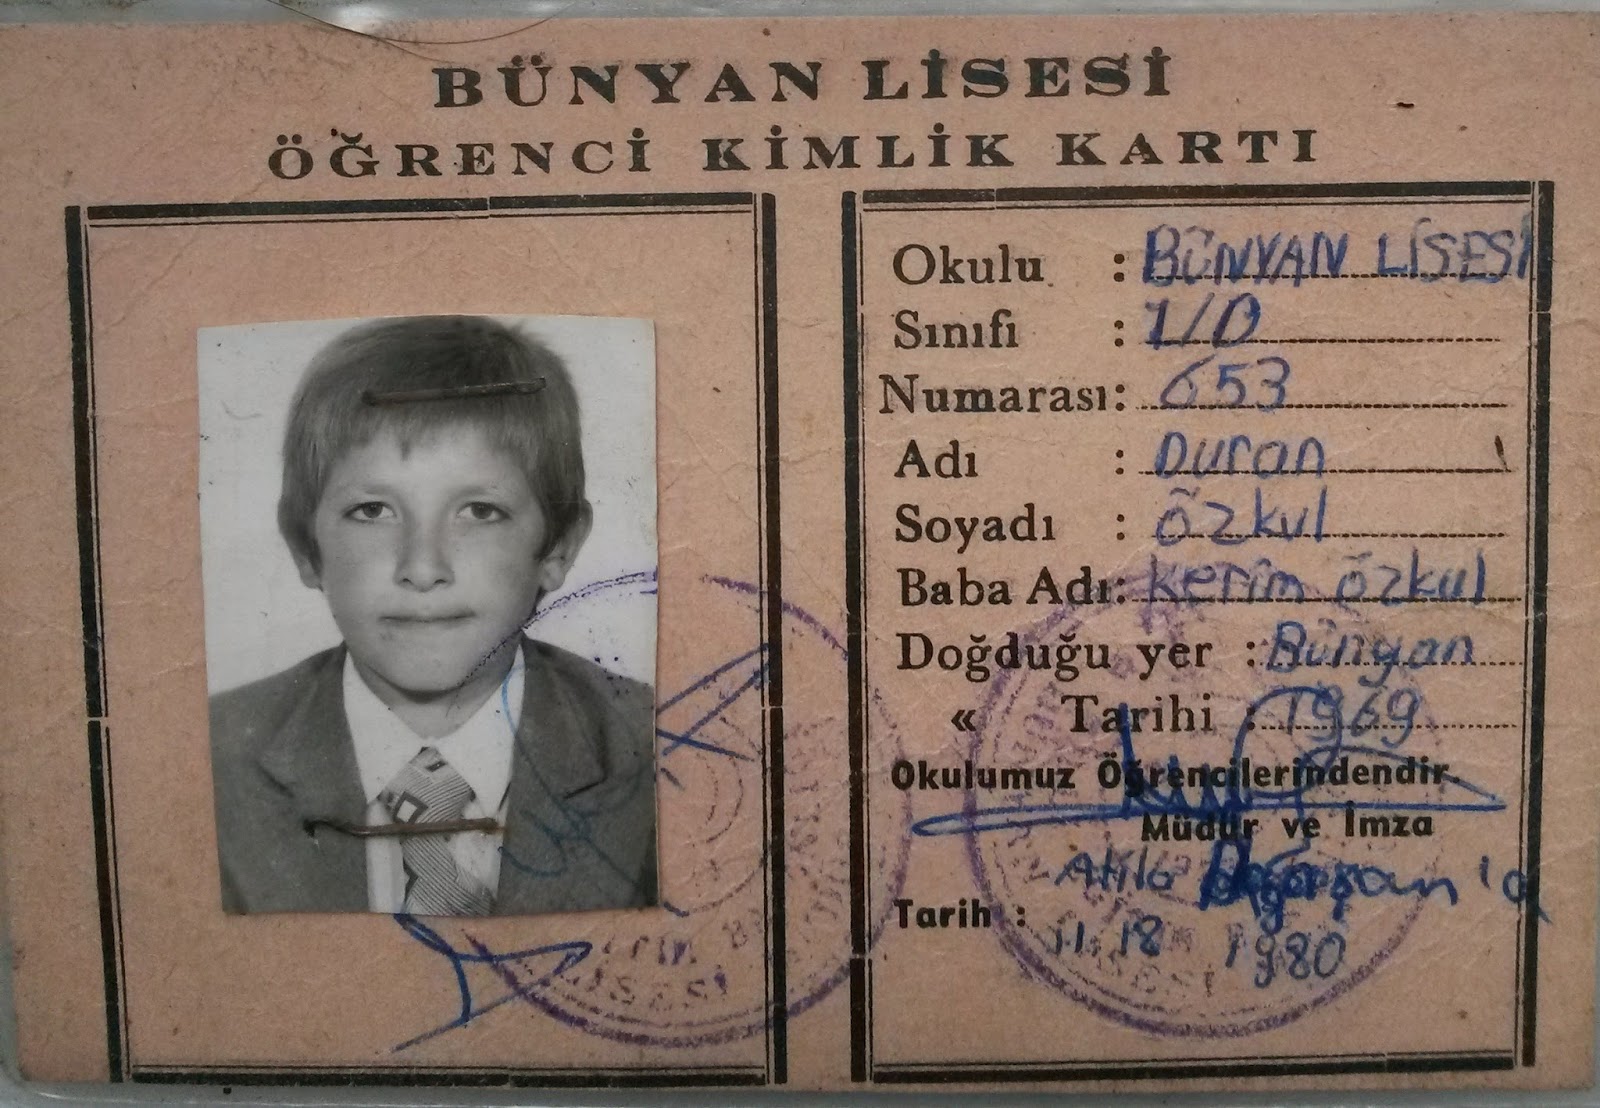 BÜNYAN LİSESİ
ÖĞRENCİ KİMLİK KARTI
Okulu : BÜNYAN LİSESİ
Sınıfı : 1/D
Numarası: 653
Adı : Duran
Soyadı : özkul
Baba Adı: Kerim özkul
Doğduğu yer : Bünyan
« Tarihi : 1969
Okulumuz Öğrencilerindendir.
Müdür ve İmza
Tarih : 1980
LİSESİ